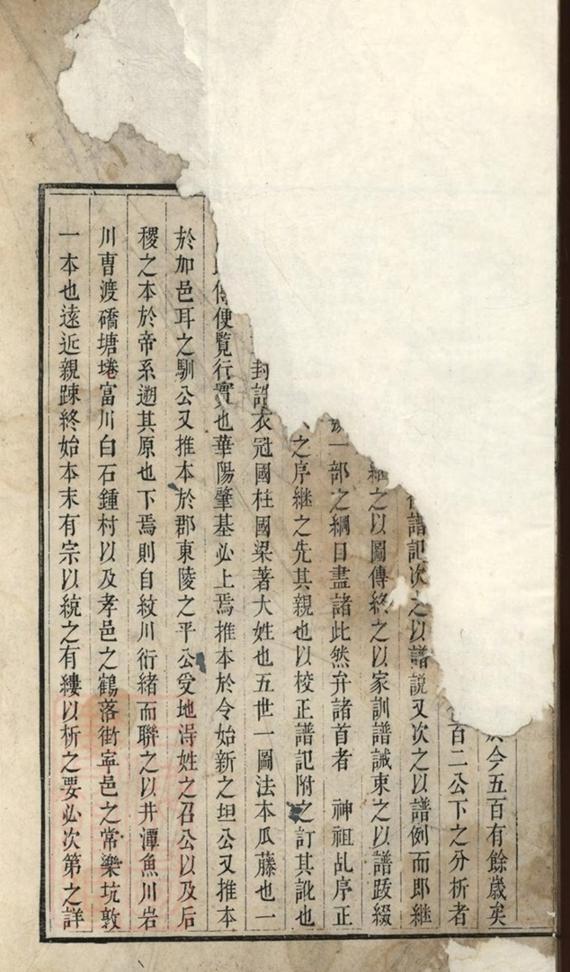 於今五百有餘歲矣
百二公下之分析者
譜記次之以譜說又次之以譜例而即繼
繼之以圖傳終之以家訓譜誡束之以譜跋綴
一部之綱目盡諸此然弁諸首者　神祖乩序正
之序繼之先其親也以校正譜記附之訂其訛也
封誥衣冠國柱國梁著大姓也五世一圖法本瓜藤也一
傳便覧行實也華陽肇基必上焉推本於令始新之坦公又推本
於加邑耳之馴公又推本於郡東陵之平公受地淂姓之召公以及后
稷之本於帝系遡其原也下焉則自紋川衍緒而聯之以井潭魚川岩
川曺渡磻塘埢富川白石鍾村以及孝邑之鶴落街寜邑之常樂坑敦
一本也遠近親踈終始本末有宗以統之有縷以析之要必次第之詳